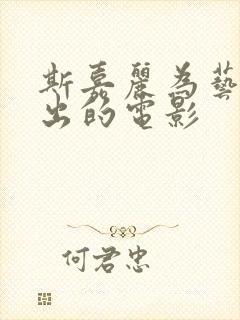 斯嘉麗為藝
出的電影
何君忠